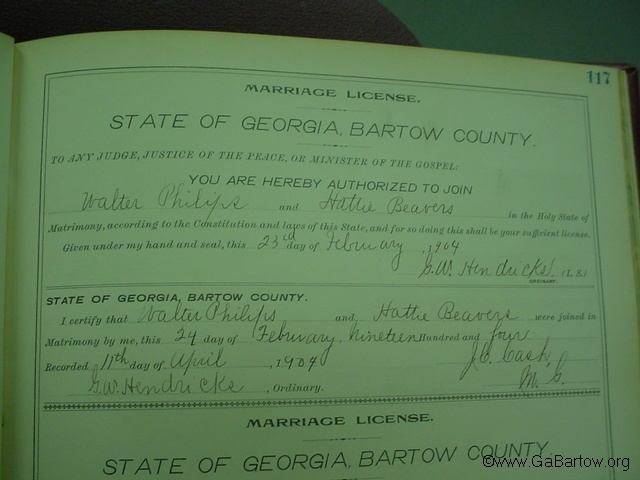 117
MARRIAGE LICENSE.
STATE OF GEORGIA, BARTOW COUNTY.
TO ANY JUDGE, JUSTICE OF THE PEACE, OR MINISTER OF THE GOSPEL:
YOU ARE HEREBY AUTHORIZED TO JOIN
Walter Philips and Hattie Beavers in the Holy State of
Matrimony, according to the Constitution and laws of this State, and for so doing this shall be your sufficient license.
Given under my hand and seal, this 23d day of February, 1904
G.W. Hendricks (L. S.)
ORDINARY.
STATE OF GEORGIA, BARTOW COUNTY.
I certify that Walter Philips and Hattie Beavers were joined in
Matrimony by me, this 24 day of February, Nineteen Hundred and four
Recorded 11th day of April, 1904 J.C. Cash,
G.W. Hendricks, Ordinary. M. G.
MARRIAGE LICENSE.
STATE OF GEORGIA, BARTOW COUNTY.
©www.GaBartow.org